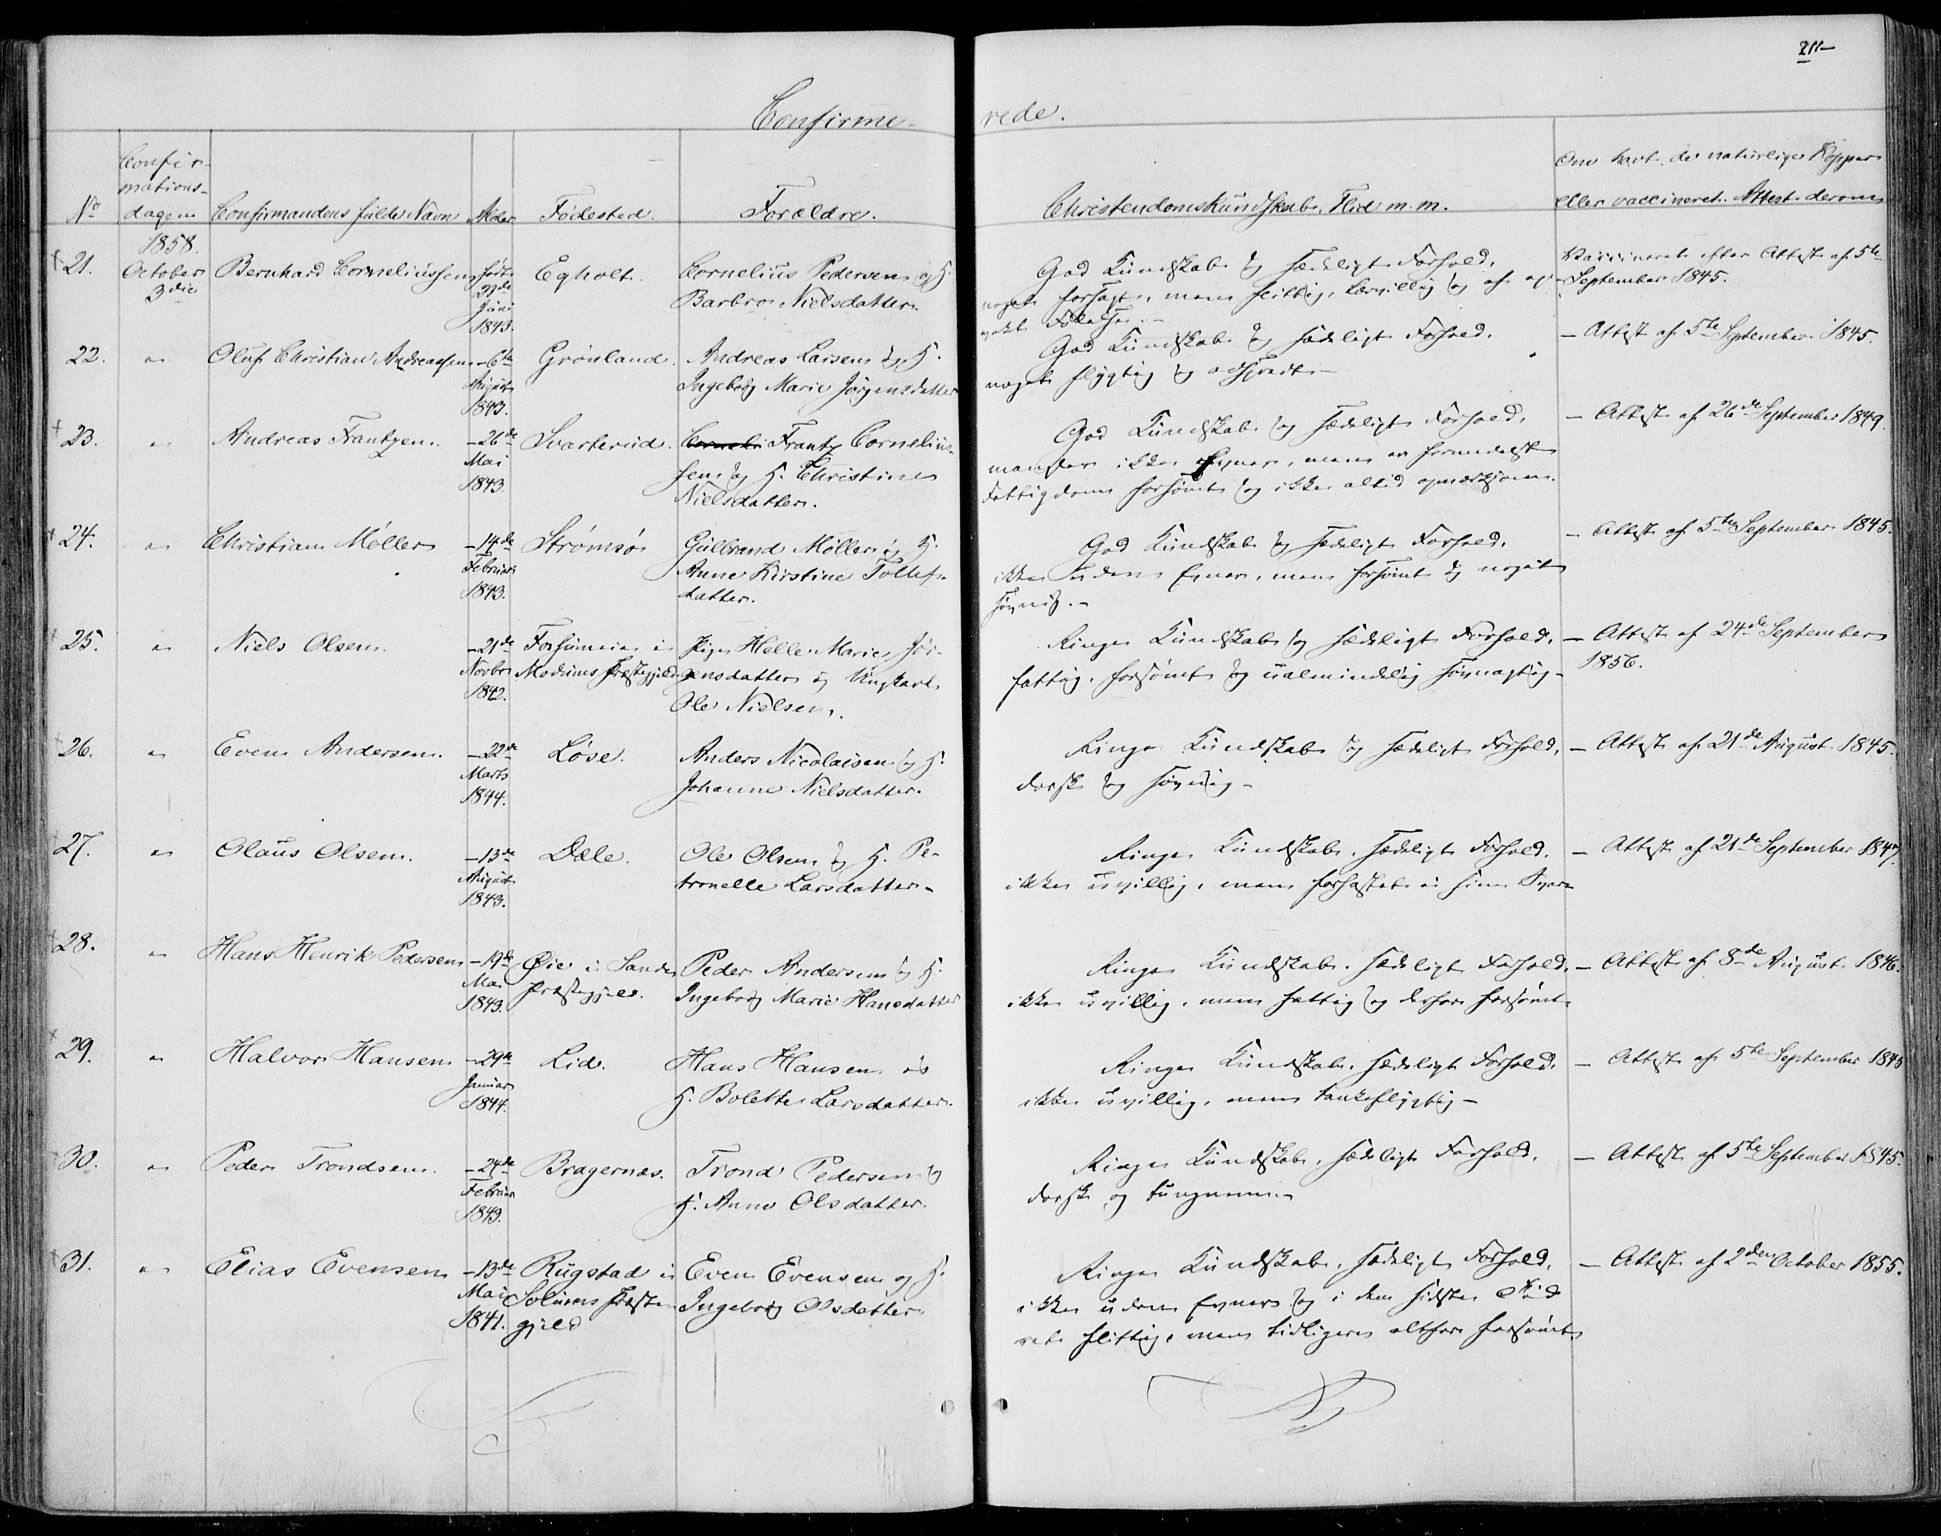 211
Confirme-
rede.
No
Confir-
mations-
dagen
Confirmandens fulde Navn
Alder
Fødested.
Forældre.
Christendomskundskab, Flid m. m.
Om havt de naturlige Kopper
eller vaccineret. Attest derom
1858.
October
3die
21.
Bernhard Corneliussen
født
27de
Juni
1843.
Egholt.
Cornelius Pedersen og H.
Barbro Nielsdatter.
God Kundskab og sædeligt Forhold,
noget forsagt, men flittig, lærvillig og af op-
vakt Følelse.
Vaccineret efter Attest af 5te
September 1845.
22.
"
Oluf Christian Andreassen
- 6te
August
1843.
Grönland.
Andreas Larsen og H.
Ingeborg Marie Jørgensdatter
God Kundskab og sædeligt Forhold,
noget flygtig og adspredt.-
- Attest af 5te September 1845.
23.
"
Andreas Frantzen.
- 26de
Mai
1843
Svarterud.
Frantz Cornelius-
sen og H. Christine
Nielsdatter.
God Kundskab og sædeligt Forhold,
mangler ikke Evner, men er formedelst
Fattigdom forsømt og ikke altid opmærksom.
- Attest af 26de September 1849.
24.
"
Christian Møller
- 14de
Februar
1843.
Strømsø
Gulbrand Møller og H.
Anne Kirstine Tollefs-
datter.
God Kundskab og sædeligt Forhold,
ikke uden Evner, men forsømt og noget
søvnig.-
- Attest af 5te September 1845.
25.
"
Niels Olsen.
- 21de
Novbr
1842.
i
Modums Præstegjeld
Pige Helle Marie Jør-
gensdatter og Ungkarl
Ole Nielsen.
Ringe Kundskab og sædeligt Forhold,
fattig, forsømt og ualmindelig søvnagtig-
- Attest af 24de September
1856.
26.
"
Even Andersen.
- 22de
Marts
1844.
Løse.
Anders Nicolaisen og H.
Johanne Nielsdatter.
Ringe Kundskab og sædeligt Forhold,
dorsk og søvnig-
- Attest af 21de August 1845.
27.
"
Olaus Olsen.
- 13de
August
1843.
Dæle.
Ole Olsen og H. Pe-
tronelle Larsdatter-
Ringe Kundskab, sædeligt Forhold,
ikke uvillig, men forhastet i sine Svar-
- Attest af 21de September 1847.
28.
"
Hans Henrik Pedersen
- 19de
Mai
1843.
Øie i Sande
Præstegjeld.
Peder Andersen og H.
Ingeborg Marie Hansdatter
Ringe Kundskab, sædeligt Forhold,
ikke uvillig, men fattig og derfor forsømt-
- Attest af 8de August 1846.
29.
"
Halvor Hansen
- 29de
Januar
1844.
Lid.
Hans Hansen og
H. Bolette Larsdatter.
Ringe Kundskab, sædeligt Forhold,
ikke uvillig, men tankeflygtig-
- Attest af 5te September 1845
30.
"
Peder Trondsen.
- 24de
Februar
1843.
Bragernæs.
Trond Pedersen og
H. Anne Olsdatter.
Ringe Kundskab, sædeligt Forhold,
dorsk og tungnem.-
- Attest af 5te September 1845.
31.
"
Elias Evensen
- 13de
Mai
1841.
Rugstad i
Solums Præste-
gjeld
Even Evensen og H.
Ingeborg Olsdatter.
Ringe Kundskab, sædeligt Forhold,
ikke uden Evner og i den sidste Tid
ret flittig, men tidligere altfor forsømt
- Attest af 2den October 1855.